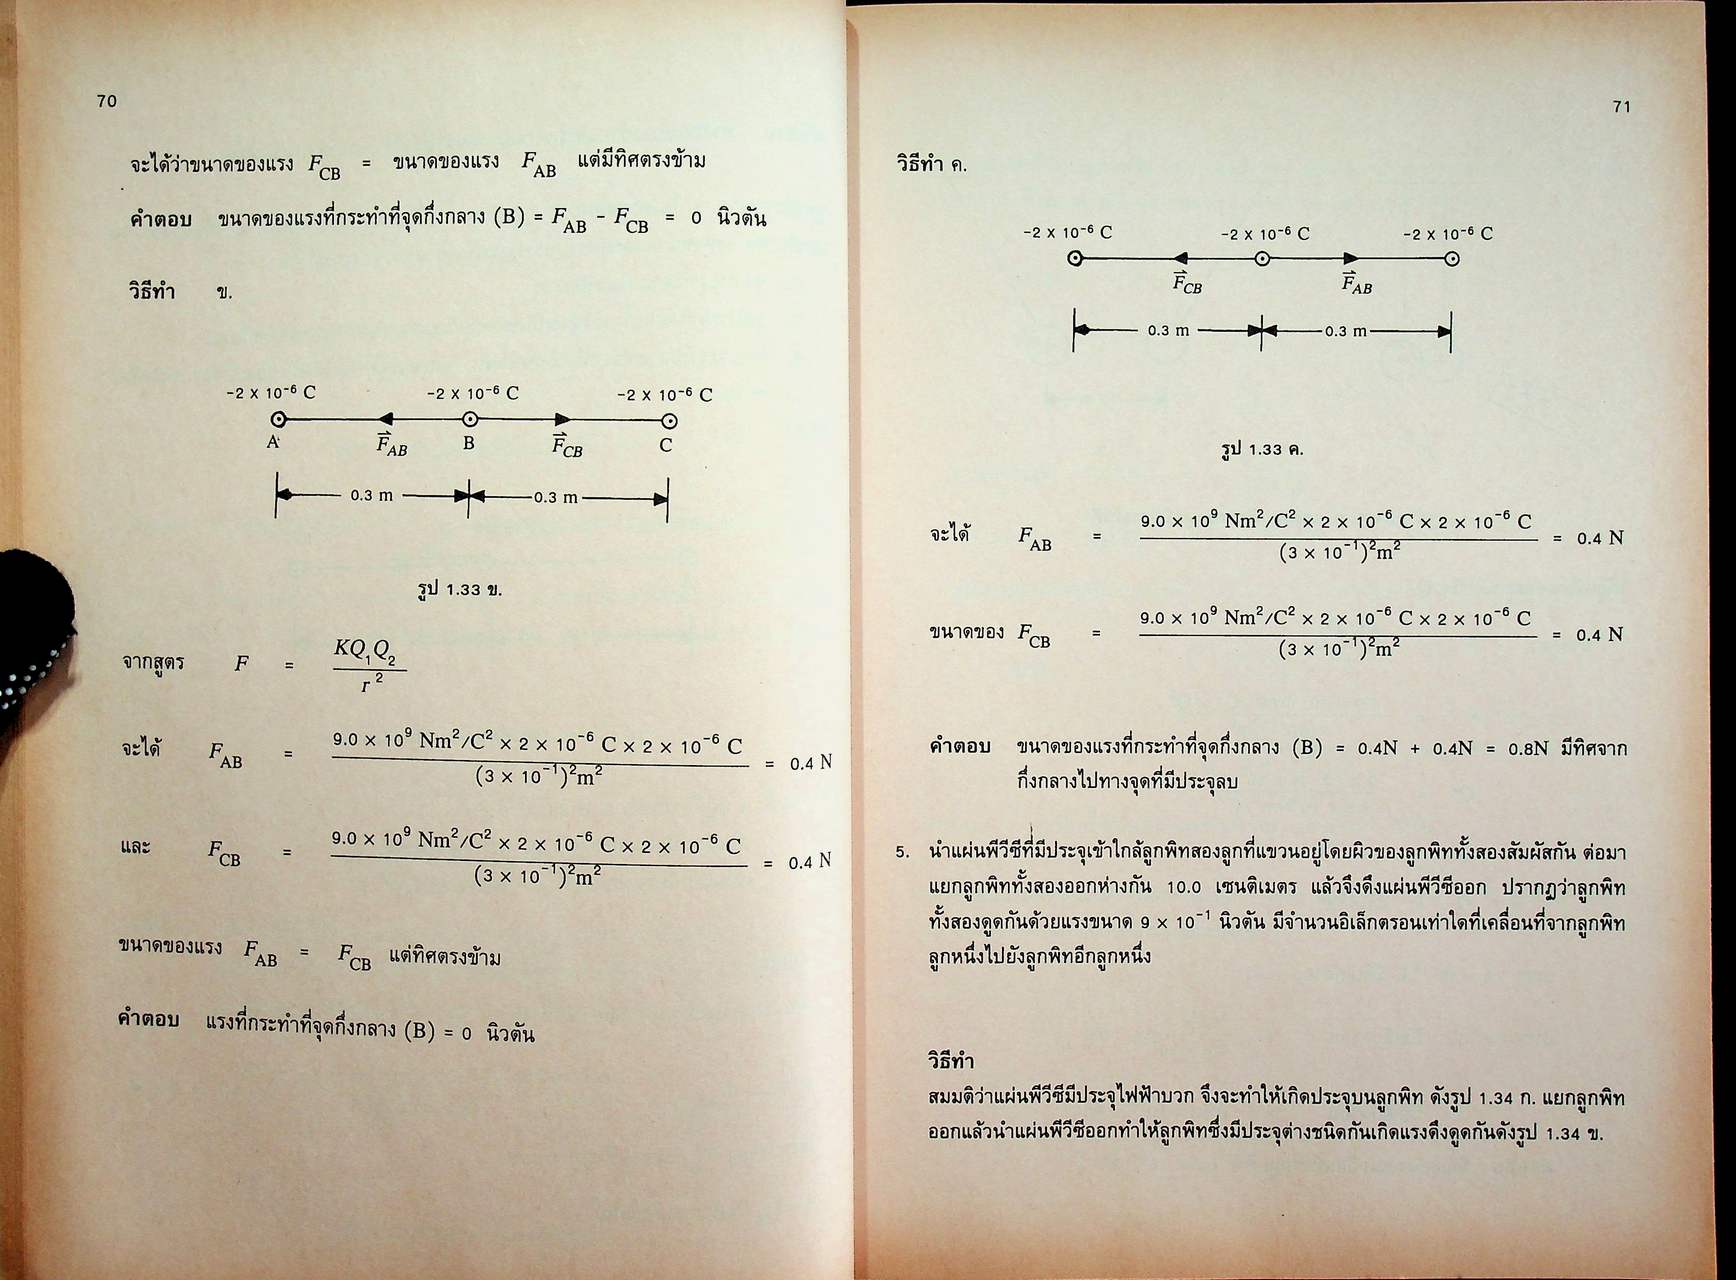 70
จะได้ว่าขนาดของแรง F_CB = ขนาดของแรง F_AB แต่มีทิศตรงข้าม
คำตอบ ขนาดของแรงที่กระทำที่จุดกึ่งกลาง (B) = F_AB - F_CB = 0 นิวตัน
วิธีทำ ข.
-2 x 10⁻⁶ C -2 x 10⁻⁶ C -2 x 10⁻⁶ C
A F_AB B F_CB C
0.3 m 0.3 m
รูป 1.33 ข.
จากสูตร F = KQ₁Q₂ / r²
จะได้ F_AB = 9.0 × 10⁹ Nm²/C² × 2 × 10⁻⁶ C × 2 × 10⁻⁶ C / (3 × 10⁻¹)²m² = 0.4 N
และ F_CB = 9.0 × 10⁹ Nm²/C² × 2 × 10⁻⁶ C × 2 × 10⁻⁶ C / (3 × 10⁻¹)²m² = 0.4 N
ขนาดของแรง F_AB = F_CB แต่ทิศตรงข้าม
คำตอบ แรงที่กระทำที่จุดกึ่งกลาง (B) = 0 นิวตัน
71
วิธีทำ ค.
-2 x 10⁻⁶ C -2 x 10⁻⁶ C -2 x 10⁻⁶ C
F_CB F_AB
0.3 m 0.3 m
รูป 1.33 ค.
จะได้ F_AB = 9.0 × 10⁹ Nm²/C² × 2 × 10⁻⁶ C × 2 × 10⁻⁶ C / (3 × 10⁻¹)²m² = 0.4 N
ขนาดของ F_CB = 9.0 × 10⁹ Nm²/C² × 2 × 10⁻⁶ C × 2 × 10⁻⁶ C / (3 × 10⁻¹)²m² = 0.4 N
คำตอบ ขนาดของแรงที่กระทำที่จุดกึ่งกลาง (B) = 0.4N + 0.4N = 0.8N มีทิศจาก
กึ่งกลางไปทางจุดที่มีประจุลบ
5. นำแผ่นพีวีซีที่มีประจุเข้าใกล้ลูกพิทสองลูกที่แขวนอยู่โดยผิวของลูกพิททั้งสองสัมผัสกัน ต่อมา
แยกลูกพิททั้งสองออกห่างกัน 10.0 เซนติเมตร แล้วจึงดึงแผ่นพีวีซีออก ปรากฏว่าลูกพิท
ทั้งสองดูดกันด้วยแรงขนาด 9 × 10⁻¹ นิวตัน มีจำนวนอิเล็กตรอนเท่าใดที่เคลื่อนที่จากลูกพิท
ลูกหนึ่งไปยังลูกพิทอีกลูกหนึ่ง
วิธีทำ
สมมติว่าแผ่นพีวีซีมีประจุไฟฟ้าบวก จึงจะทำให้เกิดประจุบนลูกพิท ดังรูป 1.34 ก. แยกลูกพิท
ออกแล้วนำแผ่นพีวีซีออกทำให้ลูกพิทซึ่งมีประจุต่างชนิดกันเกิดแรงดึงดูดกันดังรูป 1.34 ข.